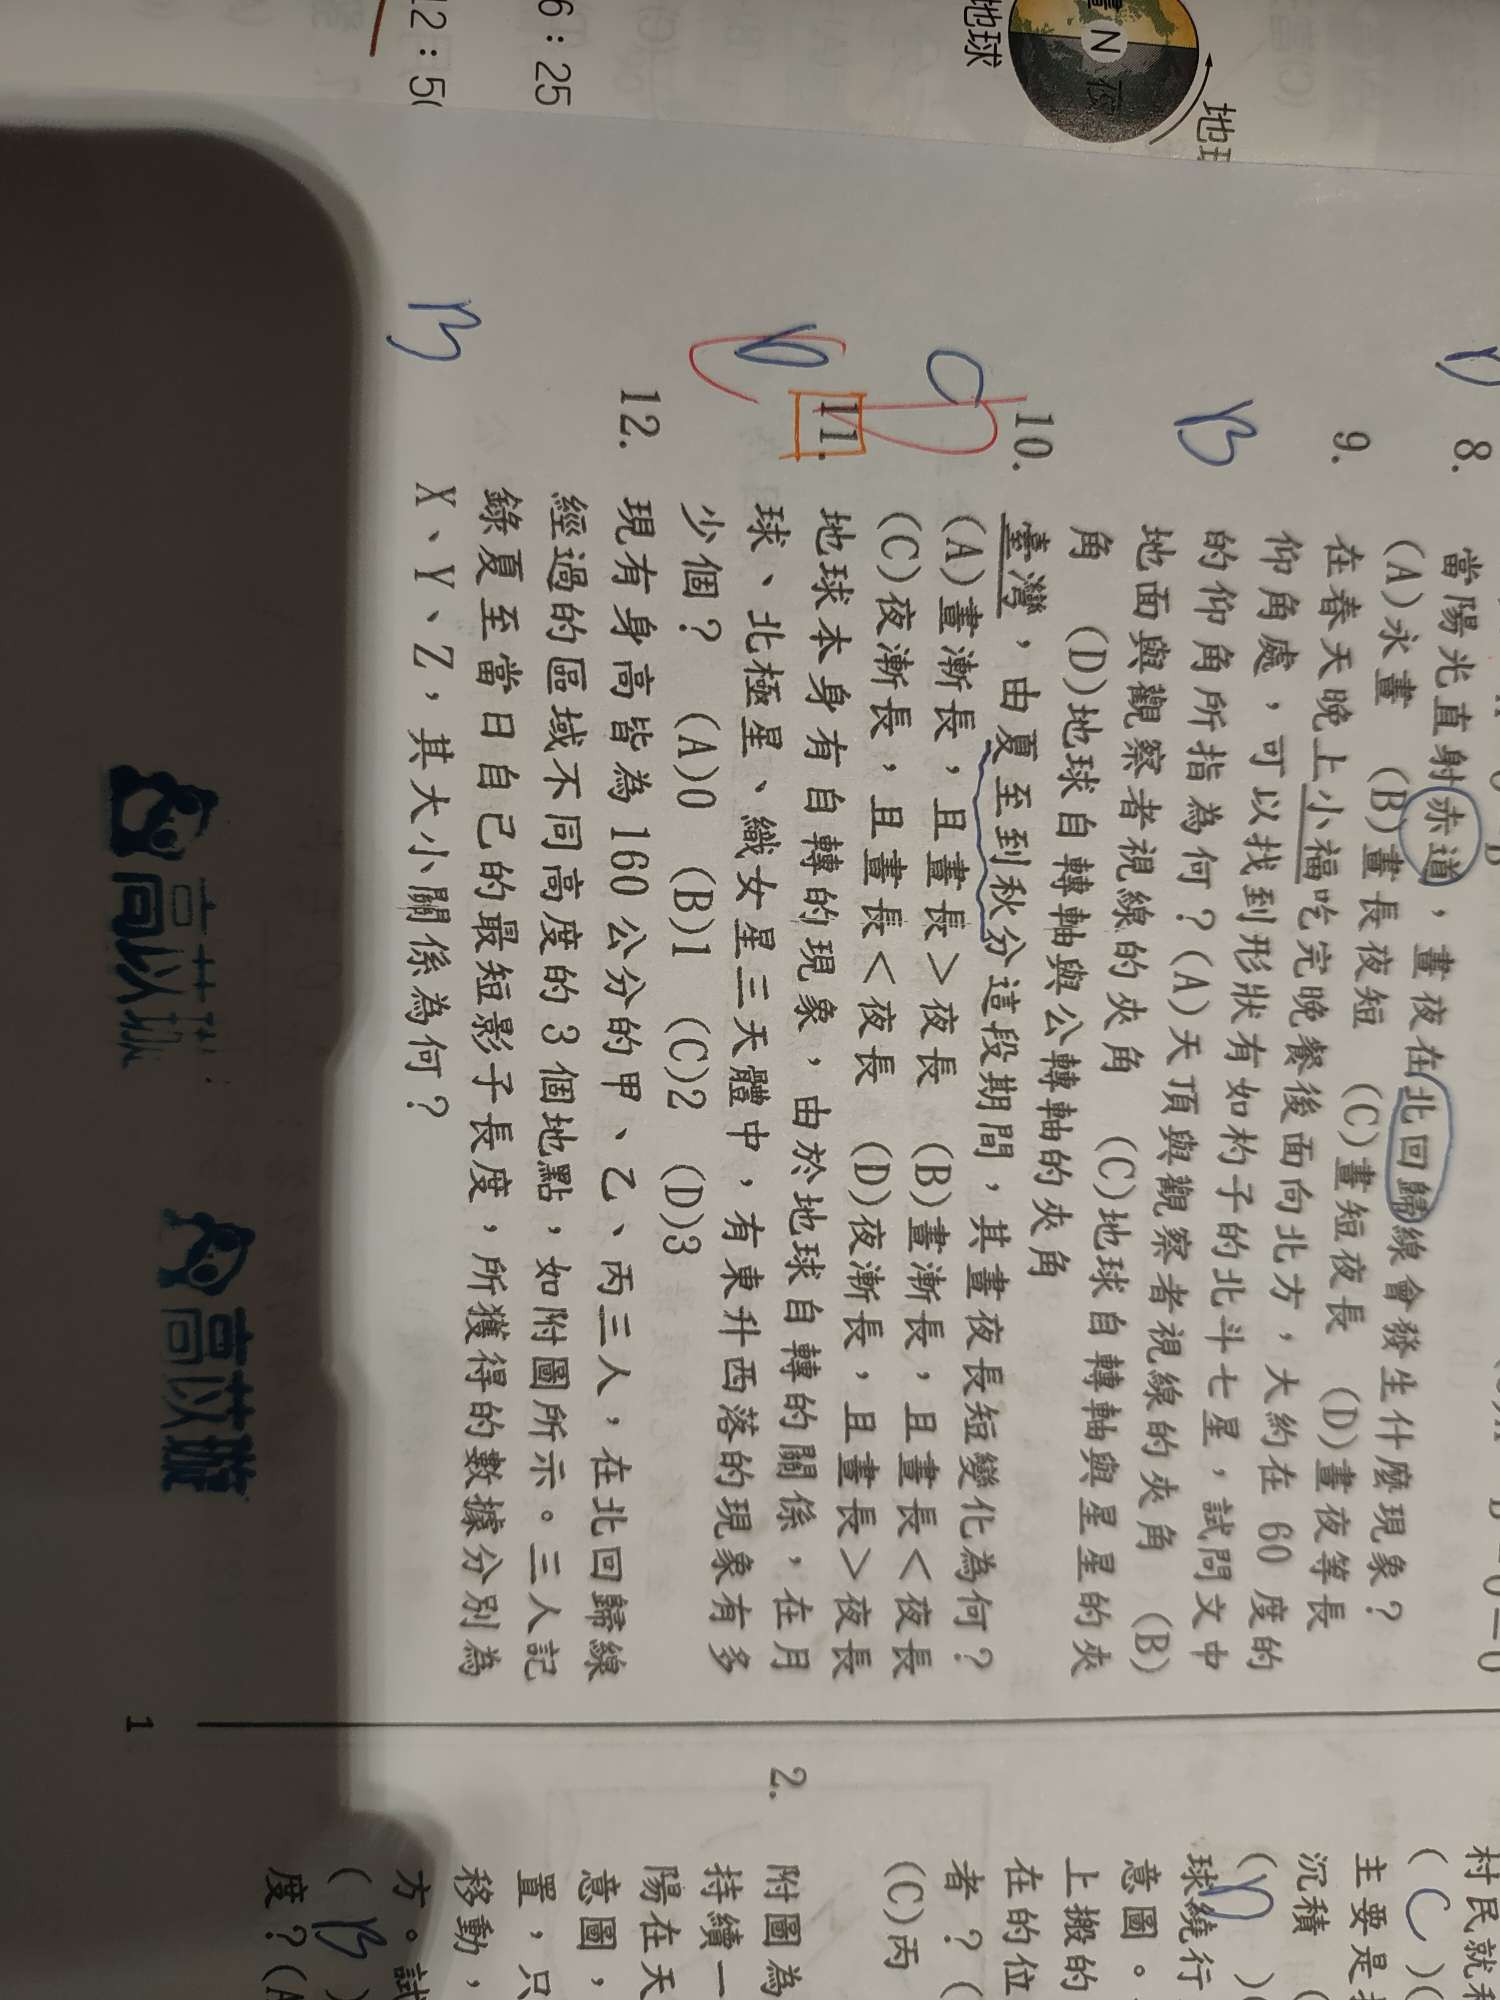 地球
N
夜
6：25
12：5
8. 當陽光直射赤道，晝夜在北回歸線會發生什麼現象？
(A)永晝 (B)晝長夜短 (C)晝短夜長 (D)晝夜等長
B
9. 在春天晚上小福吃完晚餐後面向北方，大約在 60 度的
仰角處，可以找到形狀有如杓子的北斗七星，試問文中
的仰角所指為何？(A)天頂與觀察者視線的夾角 (B)
地面與觀察者視線的夾角 (C)地球自轉軸與星星的夾
角 (D)地球自轉軸與公轉軸的夾角
10. 臺灣，由夏至到秋分這段期間，其晝夜長短變化為何？
(A)晝漸長，且晝長＞夜長 (B)晝漸長，且晝長＜夜長
(C)夜漸長，且晝長＜夜長 (D)夜漸長，且晝長＞夜長
11. 地球本身有自轉的現象，由於地球自轉的關係，在月
球、北極星、織女星三天體中，有東升西落的現象有多
少個？ (A)0 (B)1 (C)2 (D)3
B
12. 現有身高皆為 160 公分的甲、乙、丙三人，在北回歸線
經過的區域不同高度的 3 個地點，如附圖所示。三人記
錄夏至當日自己的最短影子長度，所獲得的數據分別為
X、Y、Z，其大小關係為何？
1
村民就
( C )
主要是
沉積
球繞行
意圖。
上搬的
在的位
者？(
(C)丙
2. 附圖為
持續一
陽在天
意圖，
置，只
移動，
方。試
( B )
度？(A